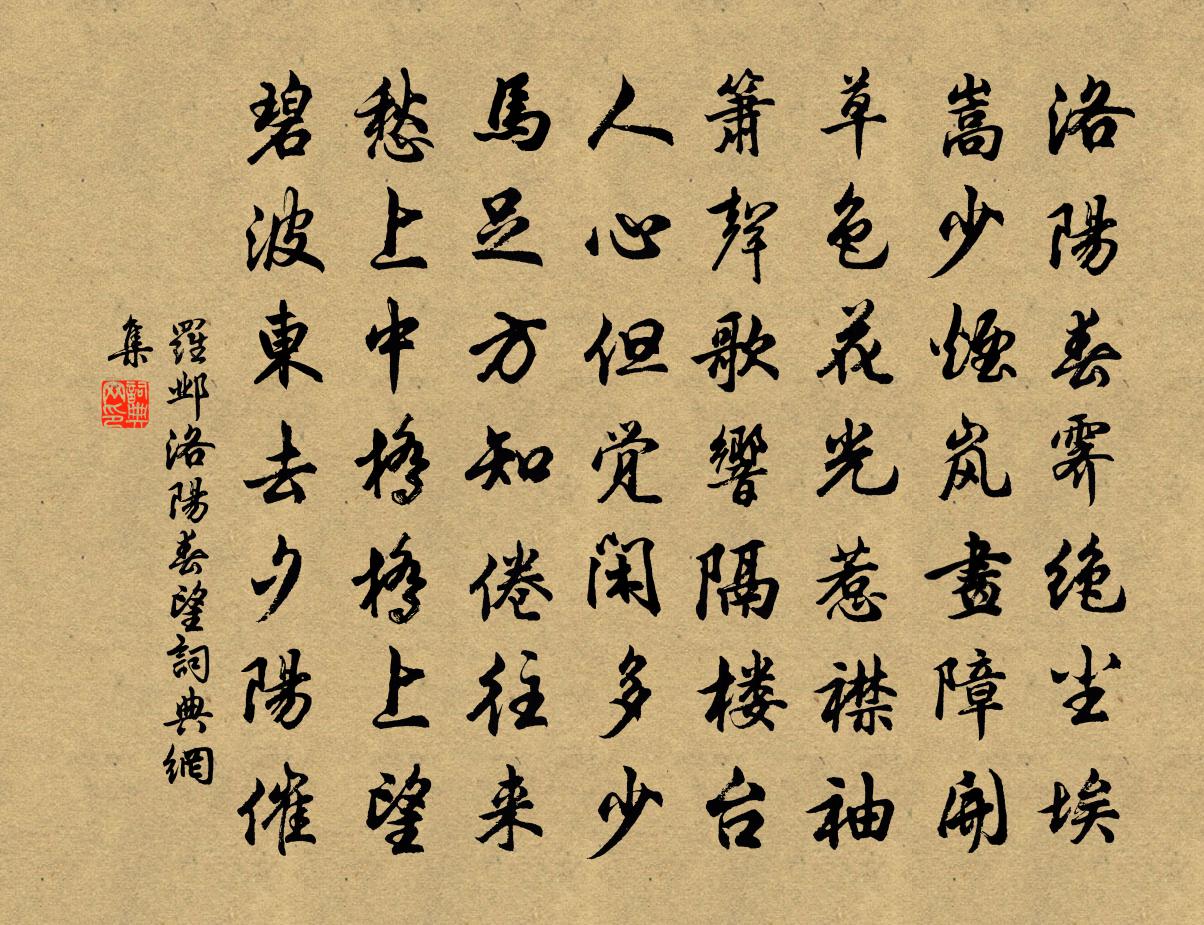 洛陽春霽絶尘埃
嵩少煙岚畫障開
草色花光惹襟袖
簫聲歌響隔楼台
人心但觉闲多少
馬足方知倦往来
愁上中橋橋上望
碧波東去夕陽催
羅邺洛陽春望詞典網
集
詞典
网印